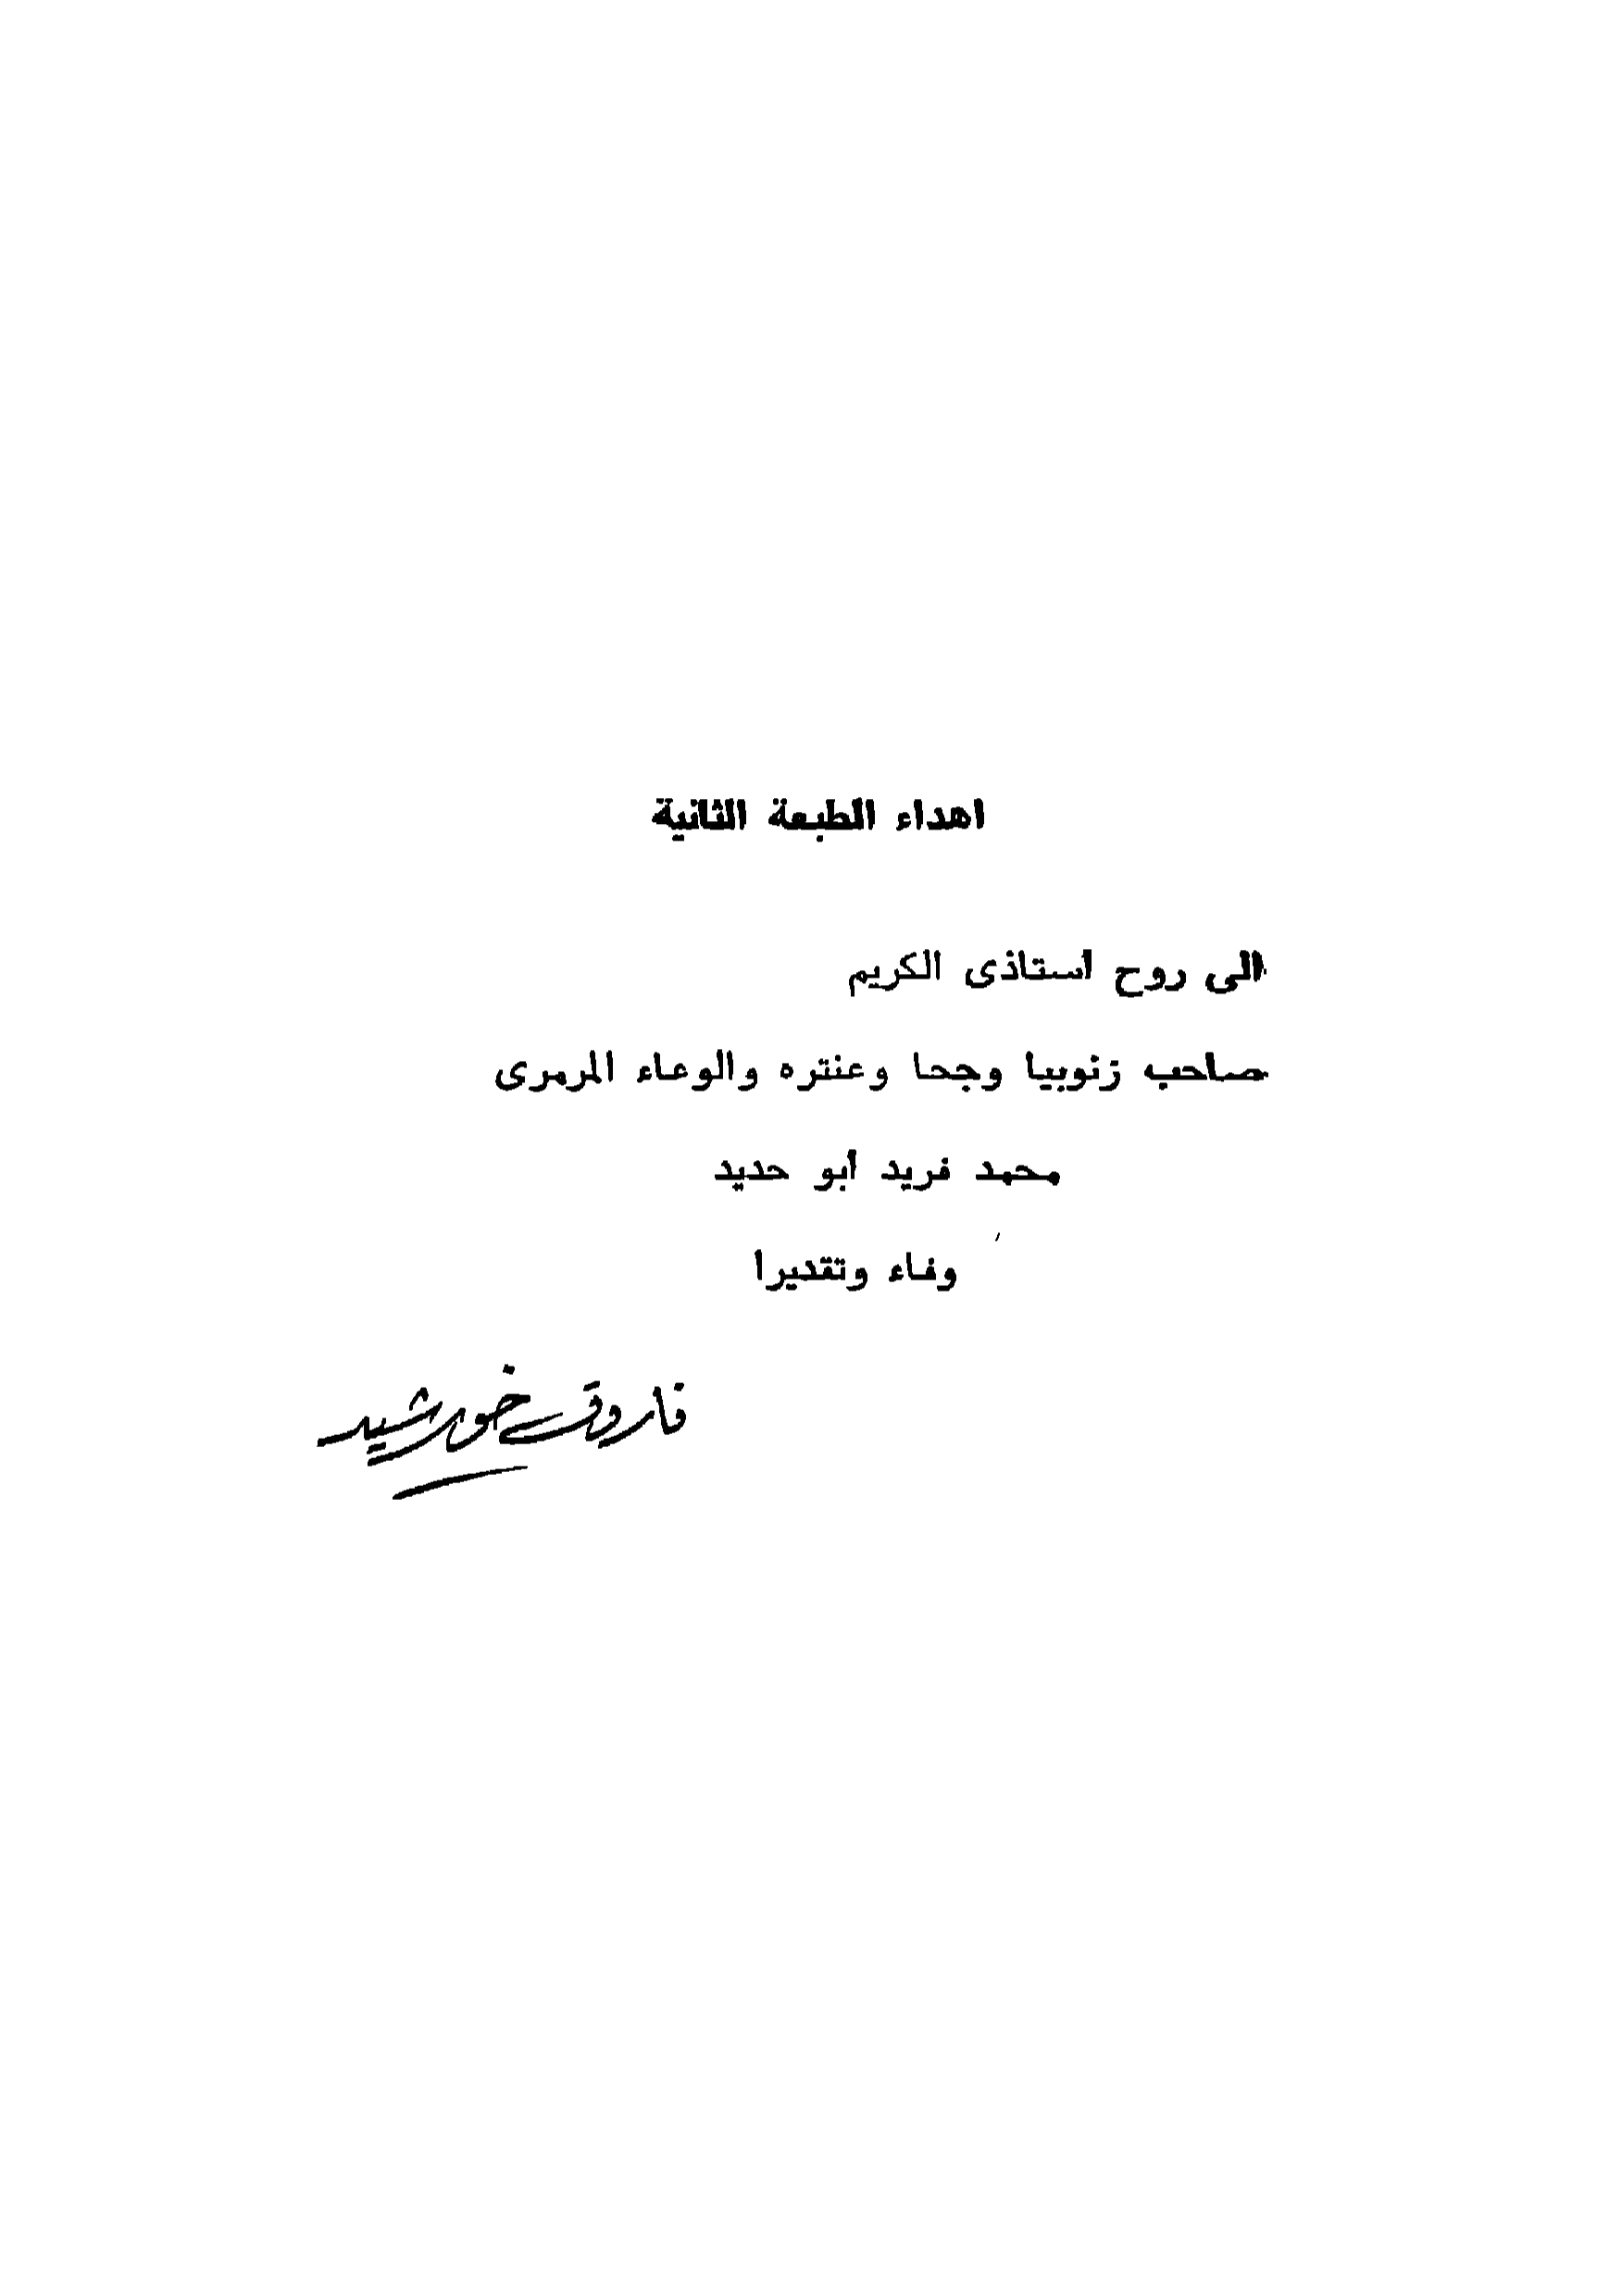 اهداء الطبعة الثانية
الى روح استاذى الكريم
صاحب زنوبيا وجحا وعنتره والوعاء المرمرى
محمد فريد أبو حديد
وفاء وتقديرا
فاروق خورشيد